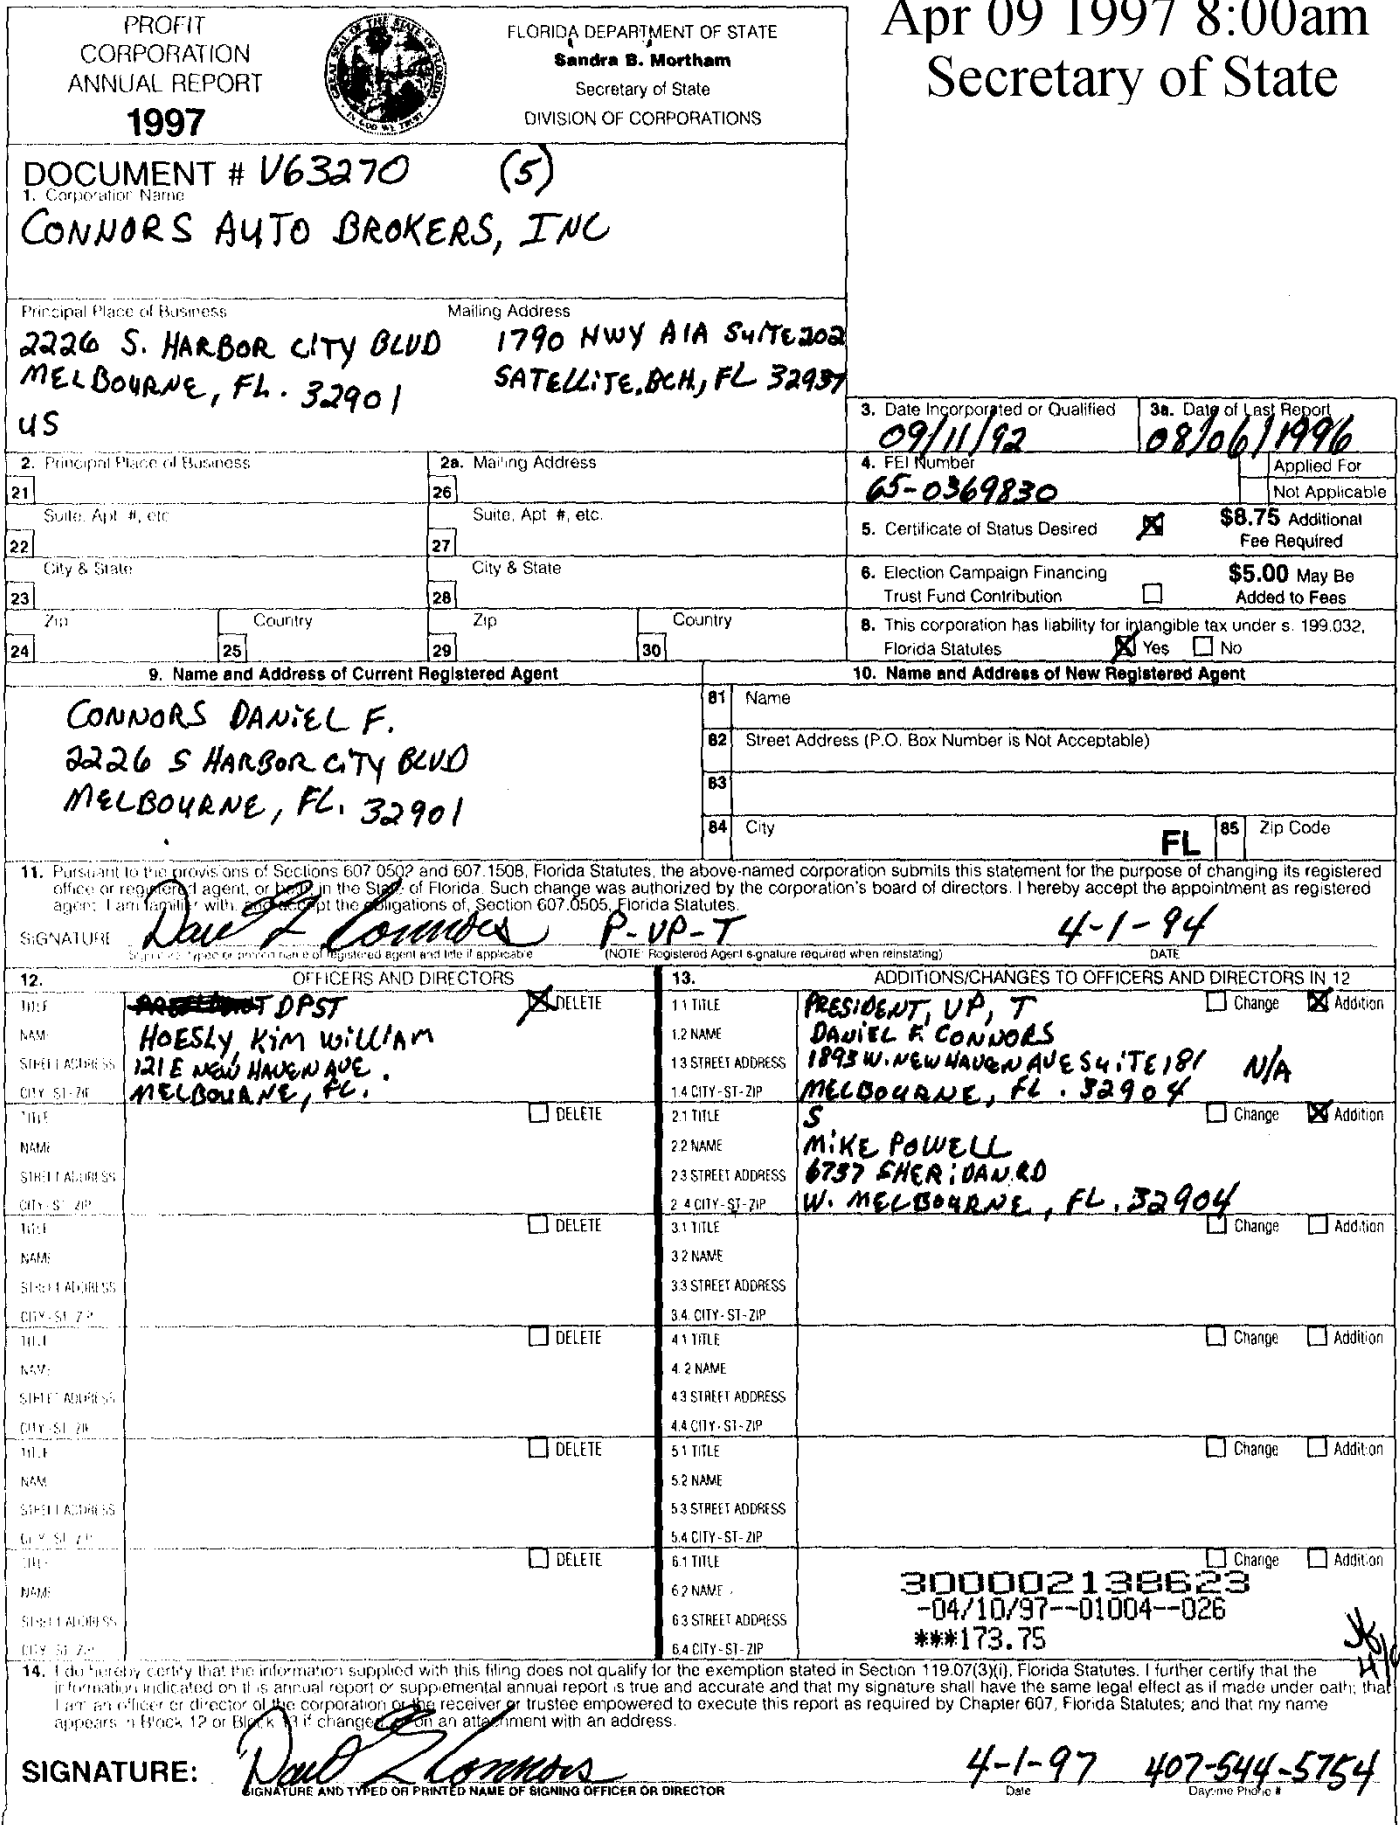 Apr 09 1997 8:00am
Secretary of State
PROFIT
CORPORATION
ANNUAL REPORT
1997
FLORIDA DEPARTMENT OF STATE
Sandra B. Mortham
Secretary of State
DIVISION OF CORPORATIONS
DOCUMENT # V63270 (5)
1. Corporation Name
CONNORS AUTO BROKERS, INC
Principal Place of Business
2226 S. HARBOR CITY BLVD
MELBOURNE, FL. 32901
US
Mailing Address
1790 HWY A1A SUITE 202
SATELLITE. BCH, FL 32937
3. Date Incorporated or Qualified
09/11/92
3a. Date of Last Report
08/06/1996
2. Principal Place of Business
21
Suite, Apt #, etc
22
City & State
23
Zip
24
Country
25
2a. Mailing Address
26
Suite, Apt #, etc.
27
City & State
28
Zip
29
Country
30
4. FEI Number
65-0369830
Applied For
Not Applicable
5. Certificate of Status Desired
$8.75 Additional
Fee Required
6. Election Campaign Financing
Trust Fund Contribution
$5.00 May Be
Added to Fees
8. This corporation has liability for intangible tax under s. 199.032,
Florida Statutes Yes No
9. Name and Address of Current Registered Agent
CONNORS DANIEL F.
2226 S HARBOR CITY BLVD
MELBOURNE, FL. 32901
10. Name and Address of New Registered Agent
81 Name
82 Street Address (P.O. Box Number is Not Acceptable)
83
84 City FL 85 Zip Code
11. Pursuant to the provisions of Sections 607.0502 and 607.1508, Florida Statutes, the above-named corporation submits this statement for the purpose of changing its registered
office or registered agent, or both, in the State of Florida. Such change was authorized by the corporation's board of directors. I hereby accept the appointment as registered
agent. I am familiar with, and accept the obligations of, Section 607.0505, Florida Statutes.
SIGNATURE P-VP-T 4-1-94
Signature, typed or printed name of registered agent and title if applicable (NOTE: Registered Agent signature required when reinstating) DATE
12. OFFICERS AND DIRECTORS
TITLE DPST DELETE
NAME HOESLY, KIM WILLIAM
STREET ADDRESS 121 E NEW HAVEN AVE.
CITY-ST-ZIP MELBOURNE, FL.
TITLE DELETE
NAME
STREET ADDRESS
CITY-ST-ZIP
TITLE DELETE
NAME
STREET ADDRESS
CITY-ST-ZIP
TITLE DELETE
NAME
STREET ADDRESS
CITY-ST-ZIP
TITLE DELETE
NAME
STREET ADDRESS
CITY-ST-ZIP
TITLE DELETE
NAME
STREET ADDRESS
CITY-ST-ZIP
13. ADDITIONS/CHANGES TO OFFICERS AND DIRECTORS IN 12
1.1 TITLE PRESIDENT, VP, T Change Addition
1.2 NAME DANIEL F. CONNORS
1.3 STREET ADDRESS 1893 W. NEW HAVEN AVE SUITE 181 N/A
1.4 CITY-ST-ZIP MELBOURNE, FL. 32904
2.1 TITLE S Change Addition
2.2 NAME MIKE POWELL
2.3 STREET ADDRESS 6737 SHERIDAN RD
2.4 CITY-ST-ZIP W. MELBOURNE, FL. 32904
3.1 TITLE Change Addition
3.2 NAME
3.3 STREET ADDRESS
3.4. CITY-ST-ZIP
4.1 TITLE Change Addition
4.2 NAME
4.3 STREET ADDRESS
4.4 CITY-ST-ZIP
5.1 TITLE Change Addition
5.2 NAME
5.3 STREET ADDRESS
5.4 CITY-ST-ZIP
6.1 TITLE Change Addition
6.2 NAME 3000002138623
6.3 STREET ADDRESS -04/10/97--01004--026
6.4 CITY-ST-ZIP ***173.75
14. I do hereby certify that the information supplied with this filing does not qualify for the exemption stated in Section 119.07(3)(i), Florida Statutes. I further certify that the
information indicated on this annual report or supplemental annual report is true and accurate and that my signature shall have the same legal effect as if made under oath; that
I am an officer or director of the corporation or the receiver or trustee empowered to execute this report as required by Chapter 607, Florida Statutes; and that my name
appears in Block 12 or Block 13 if changed, or on an attachment with an address.
SIGNATURE: 4-1-97 407-544-5754
SIGNATURE AND TYPED OR PRINTED NAME OF SIGNING OFFICER OR DIRECTOR Date Daytime Phone #